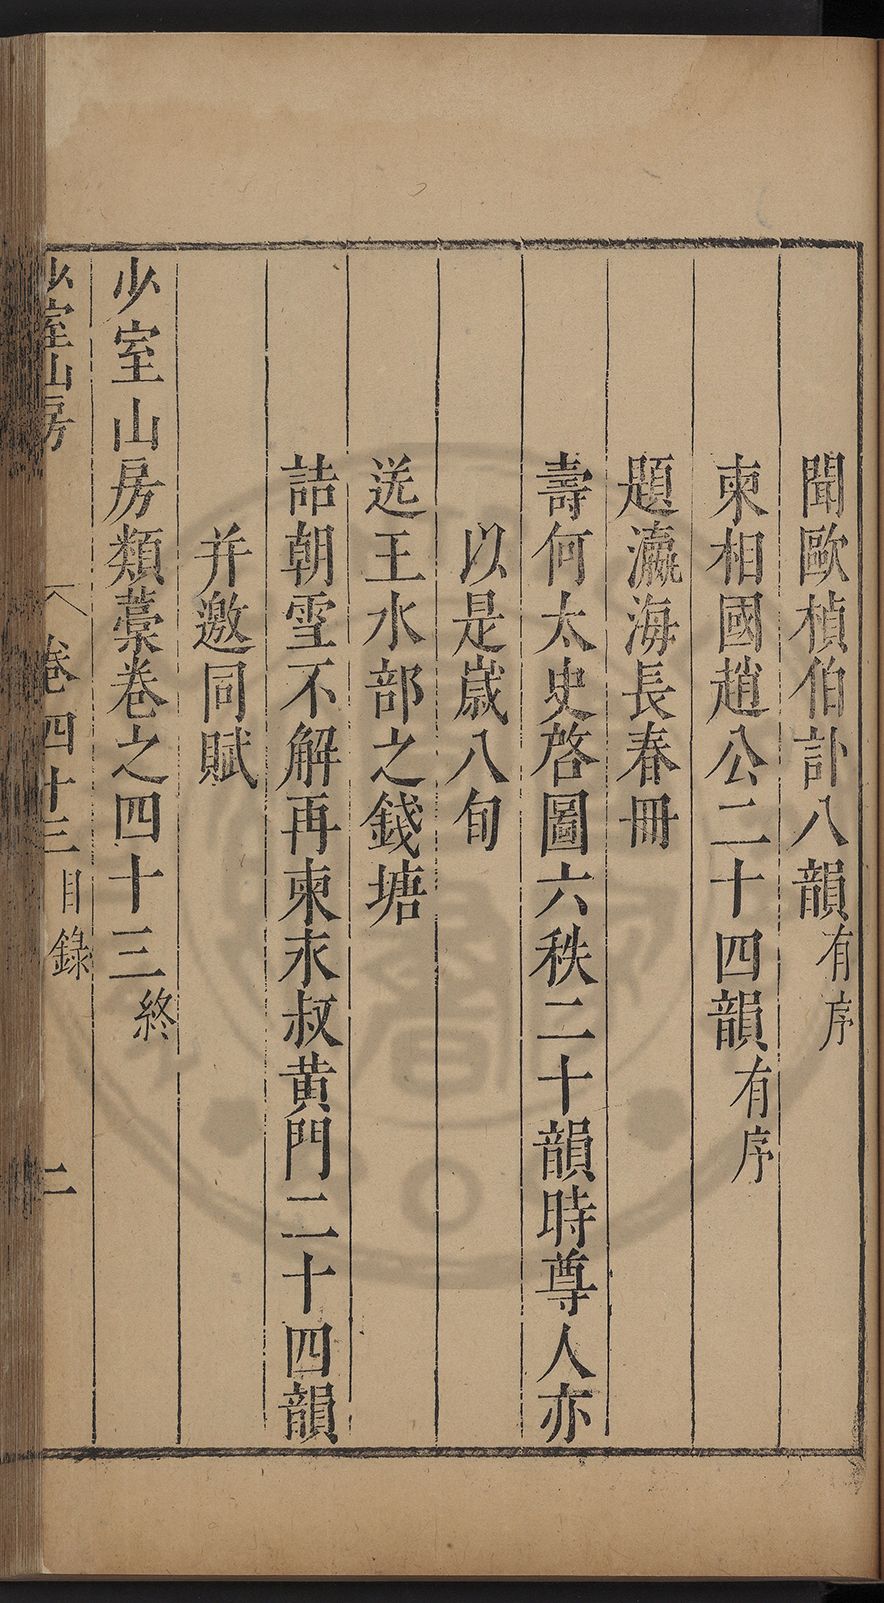 聞歐楨伯訃八韻有序
柬相國趙公二十四韻有序
題瀛海長春冊
壽何太史啓圖六秩二十韻時尊人亦
以是歲八旬
送王水部之錢塘
詰朝雪不解再柬永叔黃門二十四韻
并邀同賦
少室山房類藁卷之四十三終
少室山房 卷四十三目錄 二